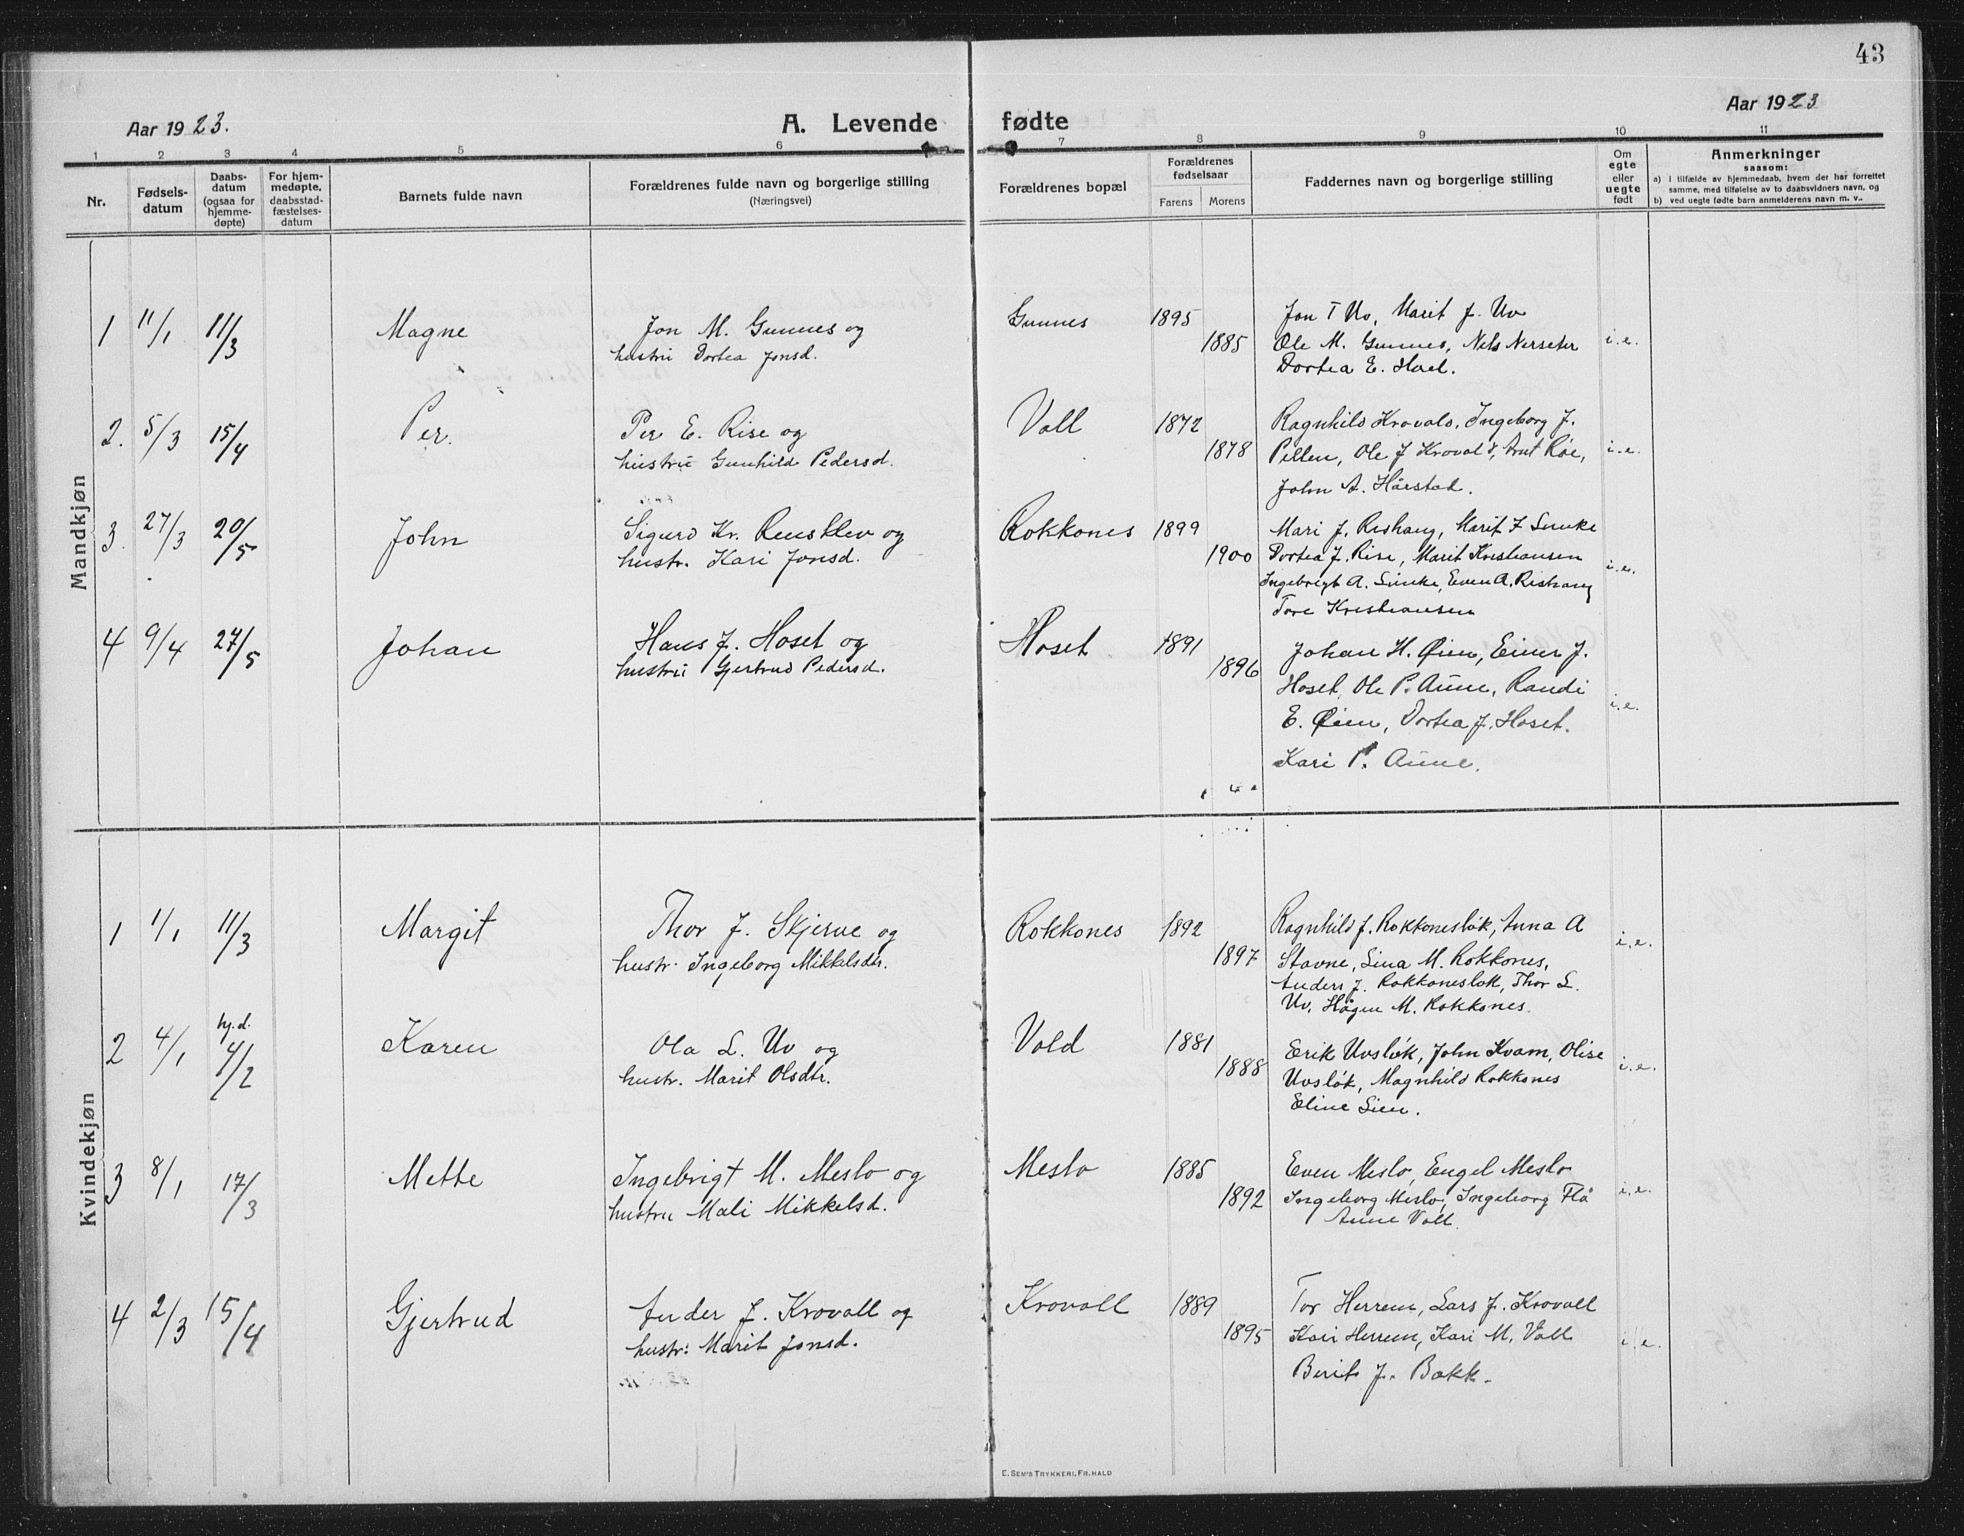 43
Aar 1923.
A. Levende fødte
Aar 1923
1 2 3 4 5 6 7 8 9 10 11
Nr.
Fødsels-
datum
Daabs-
datum
(ogsaa for
hjemme-
døpte)
For hjem-
medøpte,
daabsstad-
fæstelses-
datum
Barnets fulde navn
Forældrenes fulde navn og borgerlige stilling
(Næringsvei)
Forældrenes bopæl
Forældrenes
fødselsaar
Farens Morens
Faddernes navn og borgerlige stilling
Om
egte
eller
uegte
født
Anmerkninger
saasom:
a) i tilfælde av hjemmedaab, hvem der har forrettet
samme, med tilføielse av to daabsvidners navn, og
b) ved uegte fødte barn anmelderens navn m. v.
Mandkjøn
1 11/1 11/3 Magne
Jon M. Gunnes og
hustru Dortea Jonsd.
Gunnes 1895 1885
Jon T Uv, Marit J. Uv
Ole M. Gunnes, Nels Nerseter
Dortea E. Hoel.
i.e.
2. 5/3 15/4 Per.
Per E. Rise og
hustru Gunhild Pedersd.
Voll 1872 1878
Ragnhild Krovald, Ingeborg J.
Pellen, Ole J Krovald, Arnt Røe,
John A. Hårstad.
i.e.
3. 27/3 20/5 John
Sigurd Kr. Rensklev og
hustr. Kari Jonsd.
Rokkones 1899 1900
Mari J. Rishaug, Marit J Lunke
Dortea J. Rise, Marit Kristiansen
Ingebrigt A. Lunke, Even A. Rishaug
Tore Kristiansen
i.e.
4 9/4 27/5 Johan
Hans J. Hoset og
hustru Gjertrud Pedersd.
Hoset 1891 1896
Johan H. Øien, Einar J.
Hoset, Ole P. Aune, Randi
E. Øien, Dortea J. Hoset.
Kari P. Aune.
i.e.
Kvindekjøn
1 1/1 11/3 Margit
Thor J. Skjerve og
hustr. Ingeborg Mikkelsdtr.
Rokkones 1892 1897
Ragnhild J. Rokkonesløk, Anna A
Stavne, Lina M. Rokkones,
Anders J. Rokkonesløk, Thor L.
Uv, Hågen M. Rokkones.
i.e.
2 4/1 hj.d. 4/2 Karen
Ola L. Uv og
hustr. Marit Olsdtr.
Vold 1881 1888
Erik Uvsløk, John Kvam, Olise
Uvsløk, Magnhild Rokkones
Eline Lien.
i.e.
3 8/1 17/3 Mette
Ingebrigt M. Meslo og
hustru Mali Mikkelsd.
Meslo 1885 1892
Even Meslo, Engel Meslo
Ingeborg Meslo, Ingeborg Flå
Anne Voll.
i.e.
4 2/3 15/4 Gjertrud
Ander J. Krovoll og
hustr: Marit Jonsd.
Krovoll 1889 1895
Tor Herrem, Lars J. Krovoll
Kari Herrem, Kari M. Voll
Berit J. Bakk.
i.e.
E. SEM'S TRYKKERI, FR.HALD